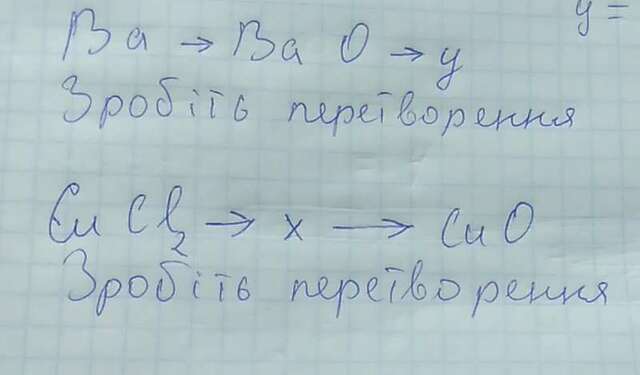 y =
Ba → BaO → y
Зробіть перетворення
CuCl₂ → x → CuO
Зробіть перетворення